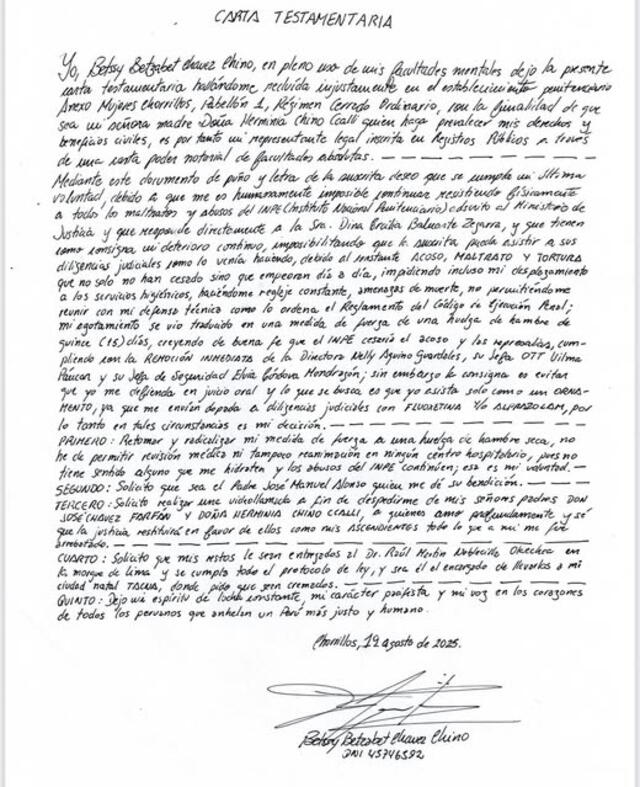 CARTA TESTAMENTARIA
Yo, Betssy Betzabet Chavez Chino, en pleno uso de mis facultades mentales dejo la presente
carta testamentaria hallándome recluida injustamente en el establecimiento penitenciario
Anexo Mujeres Chorrillos, Pabellón 1, Régimen Cerrado Ordinario, con la finalidad de que
sea mi señora madre Doña Herminia Chino Ccalli quien haga prevalecer mis derechos y
beneficios civiles, es por tanto mi representante legal inscrita en Registros Públicos a través
de una carta poder notarial de facultades absolutas.
Mediante este documento de puño y letra de la suscrita deseo que se cumpla mi última
voluntad, debido a que me es humanamente imposible continuar resistiendo físicamente
a todos los maltratos y abusos del INPE (Instituto Nacional Penitenciario) adscrito al Ministerio de
Justicia y que responde directamente a la Sra. Dina Ercilia Boluarte Zegarra, y que tienen
como consigna mi deterioro continuo, imposibilitando que la suscrita pueda asistir a sus
diligencias judiciales como lo venía haciendo, debido al constante ACOSO, MALTRATO Y TORTURA
que no solo no han cesado sino que empeoran día a día, impidiendo incluso mi desplazamiento
a los servicios higiénicos, haciéndome reglaje constante, amenazas de muerte, no permitiéndome
reunir con mi defensa técnica como lo ordena el Reglamento del Código de Ejecución Penal;
mi agotamiento se vio traducido en una medida de fuerza de una huelga de hambre de
quince (15) días, creyendo de buena fe que el INPE cesaría el acoso y las represalias, cum-
pliendo con la REMOCIÓN INMEDIATA de la Directora Nelly Aquino Guardales, su Jefa OTT Vilma
Páucar y su Jefa de Seguridad Elvia Córdova Mondragón; sin embargo la consigna es evitar
que yo me defienda en juicio oral y lo que se busca es que yo asista solo como un ORNA-
MENTO, ya que me envían dopada a diligencias judiciales con FLUOXETINA Y/O ALPRAZOLAM, por
lo tanto en tales circunstancias es mi decisión.
PRIMERO: Retomar y radicalizar mi medida de fuerza a una huelga de hambre seca, no
he de permitir revisión médica ni tampoco reanimación en ningún centro hospitalario, pues no
tiene sentido alguno que me hidraten y los abusos del INPE continúen; esa es mi voluntad.
SEGUNDO: Solicito que sea el Padre José Manuel Alonso quien me dé su bendición.
TERCERO: Solicito realizar una videollamada a fin de despedirme de mis señores padres DON
JOSÉ CHAVEZ FARFÁN y DOÑA HERMINIA CHINO CCALLI, a quienes amo profundamente y sé
que la justicia restituirá en favor de ellos como mis ASCENDIENTES todo lo que a mí me fue
arrebatado.
CUARTO: Solicito que mis restos le sean entregados al Dr. Raúl Martin Noblecilla Olaechea en
la morgue de Lima y se cumpla todo el protocolo de ley, y sea él el encargado de llevarlos a mi
ciudad natal TACNA, donde pido que sean cremados.
QUINTO: Dejo mi espíritu de lucha constante, mi carácter profesta y mi voz en los corazones
de todos los peruanos que anhelan un Perú más justo y humano.
Chorrillos, 19 agosto de 2025.
Betssy Betzabet Chavez Chino
DNI 45746592